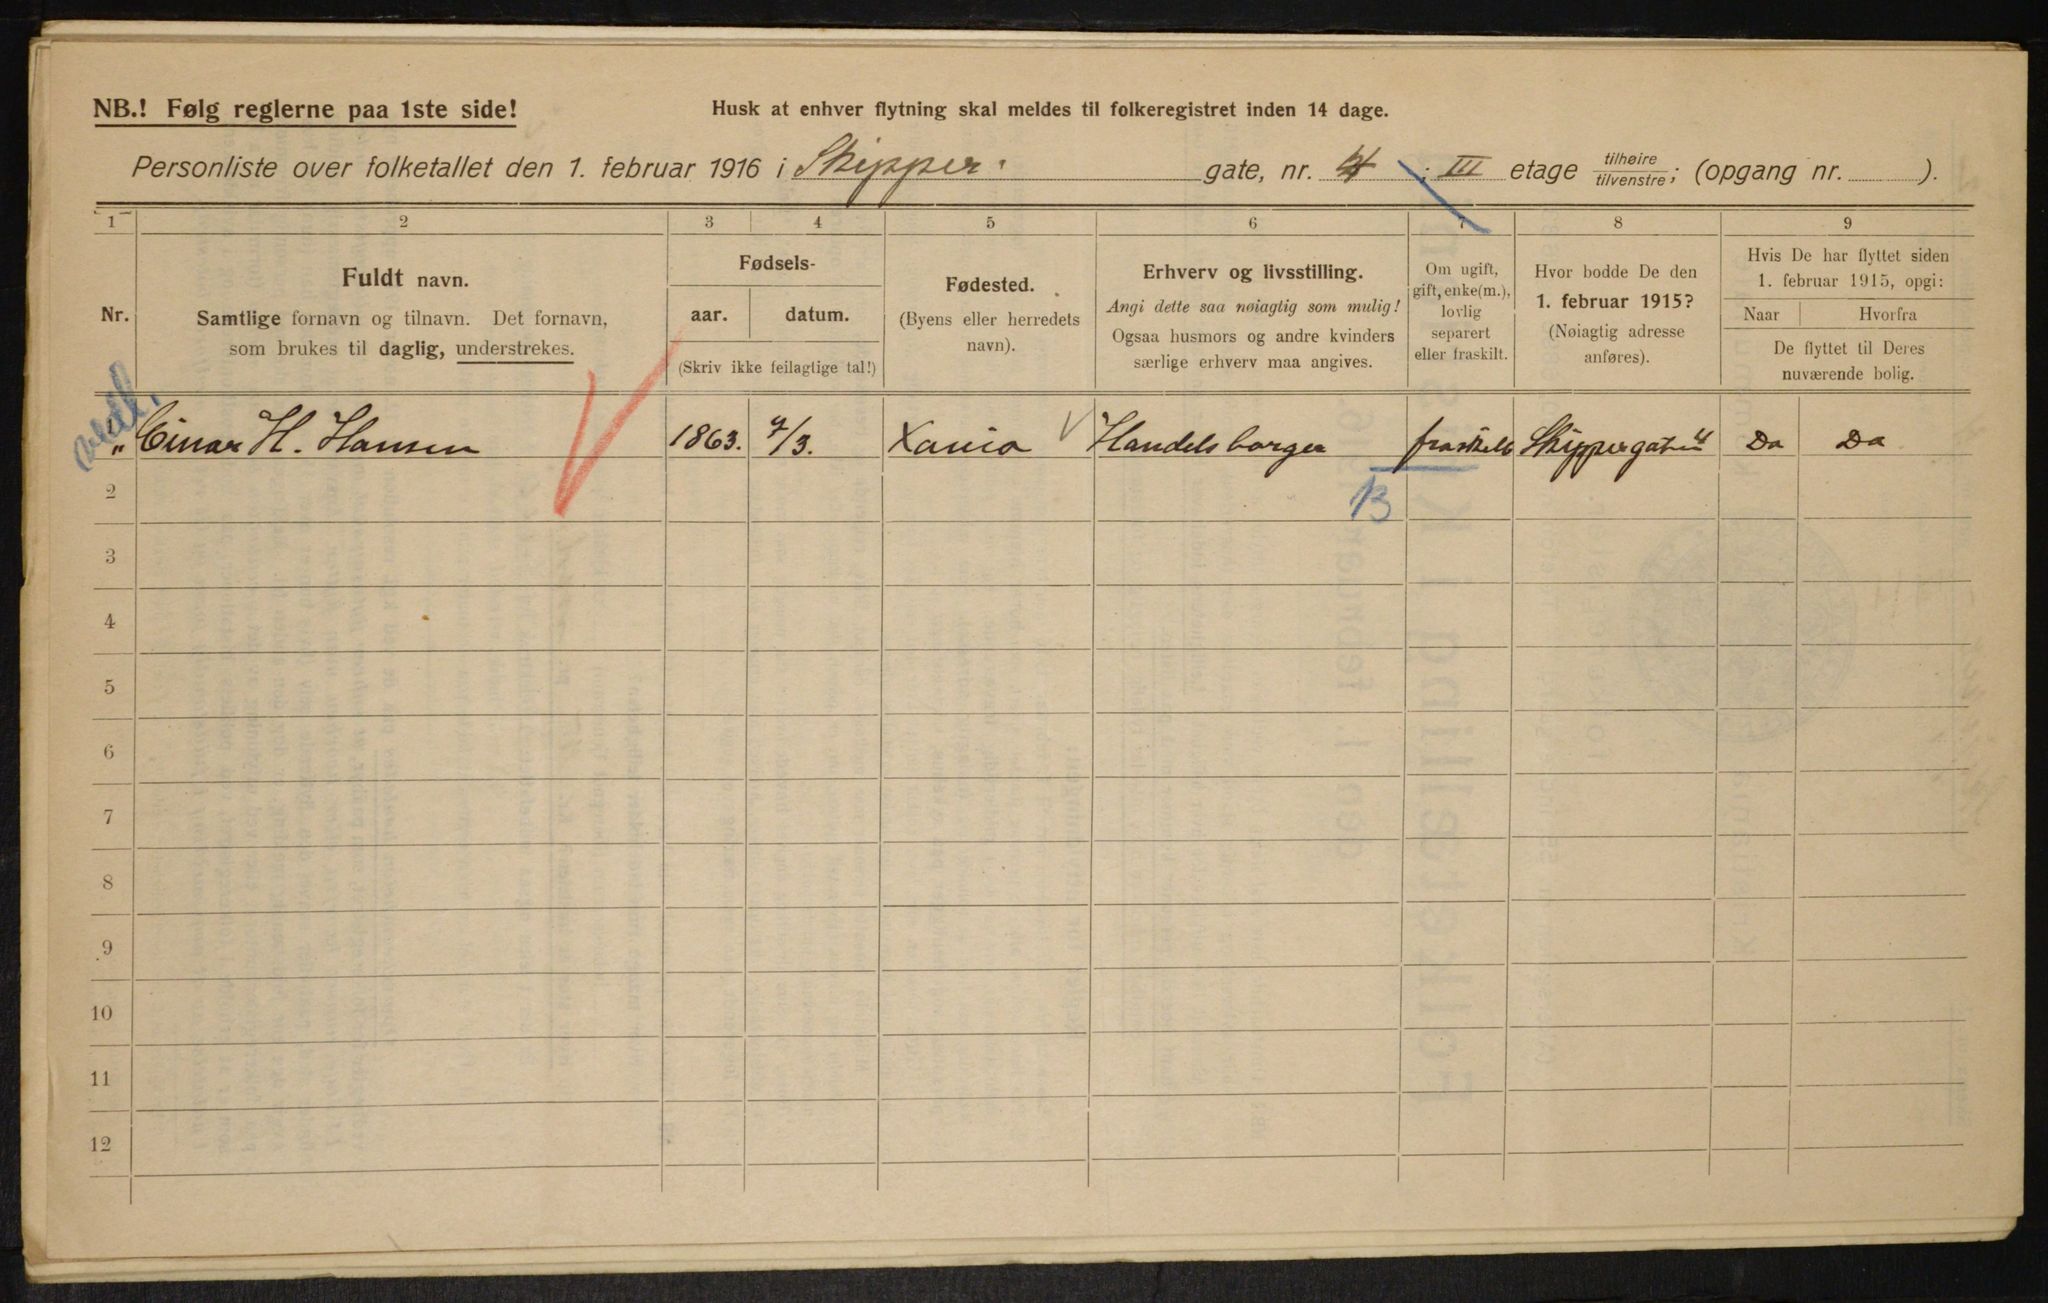 NB.! Følg reglerne paa 1ste side!
Husk at enhver flytning skal meldes til folkeregistret inden 14 dage.
Personliste over folketallet den 1. februar 1916 i Skipper. gate, nr. 4 ; III etage tilhøire/tilvenstre; (opgang nr. ).
1 2 3 4 5 6 7 8 9
Nr.
Fuldt navn.
Samtlige fornavn og tilnavn. Det fornavn,
som brukes til daglig, understrekes.
Fødsels-
aar. datum.
(Skriv ikke feilagtige tal!)
Fødested.
(Byens eller herredets
navn).
Erhverv og livsstilling.
Angi dette saa nøiagtig som mulig!
Ogsaa husmors og andre kvinders
særlige erhverv maa angives.
Om ugift,
gift, enke(m.),
lovlig
separert
eller fraskilt.
Hvor bodde De den
1. februar 1915?
(Nøiagtig adresse
anføres).
Hvis De har flyttet siden
1. februar 1915, opgi:
Naar Hvorfra
De flyttet til Deres
nuværende bolig.
1 Einar H. Hansen 1863. 7/3. Xania Handelsborger fraskilt Skippergaten 4 Da Da
2 13
3
4
5
6
7
8
9
10
11
12